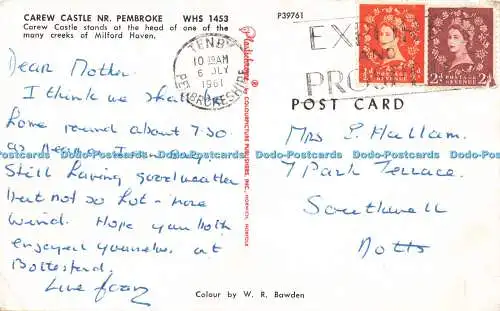 CAREW CASTLE NR. PEMBROKE WHS 1453
Carew Castle stands at the head of one of the
many creeks of Milford Haven.
P39761
TENBY
10 AM
6 JLY
1961
PEMBROKESHIRE
POSTAGE REVENUE
Plastichrome ®
by COLOURPICTURE PUBLISHERS, INC.
Dear Mother
I think we shall be
home round about 7.30
as near as I can say.
Still having good weather
but not so hot - more
wind. Hope you both
enjoyed yourselves at
Bottesford.
Love
POST CARD
Mrs Hallam.
7 Park Terrace.
Southwell
Notts
Colour by W. R. Bawden
Dodo-Postcards Dodo-Postcards Dodo-Postcards Dodo-Postcards Dodo-Postcards